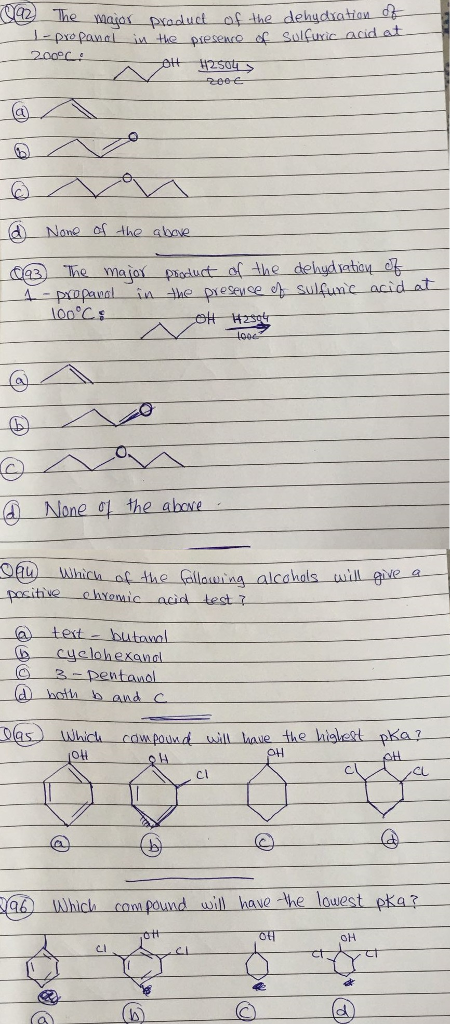 Q92 The major product of the dehydration of
1-propanol in the presence of sulfuric acid at
200°C :
OH H2SO4
200C
a
b O
c O
d None of the above
Q93 The major product of the dehydration of
1-propanol in the presense of sulfuric acid at
100°C :
OH H2SO4
100C
a
b O
c O
d None of the above .
Q94 Which of the following alcohols will give a
positive chromic acid test ?
a tert - butanol
b cyclohexanol
c 3 - pentanol
d both b and c
Q95 Which compound will have the highest pKa ?
OH OH Cl OH Cl OH Cl
a b c d
Q96 Which compound will have the lowest pKa ?
Cl OH Cl OH Cl OH Cl
a b c d